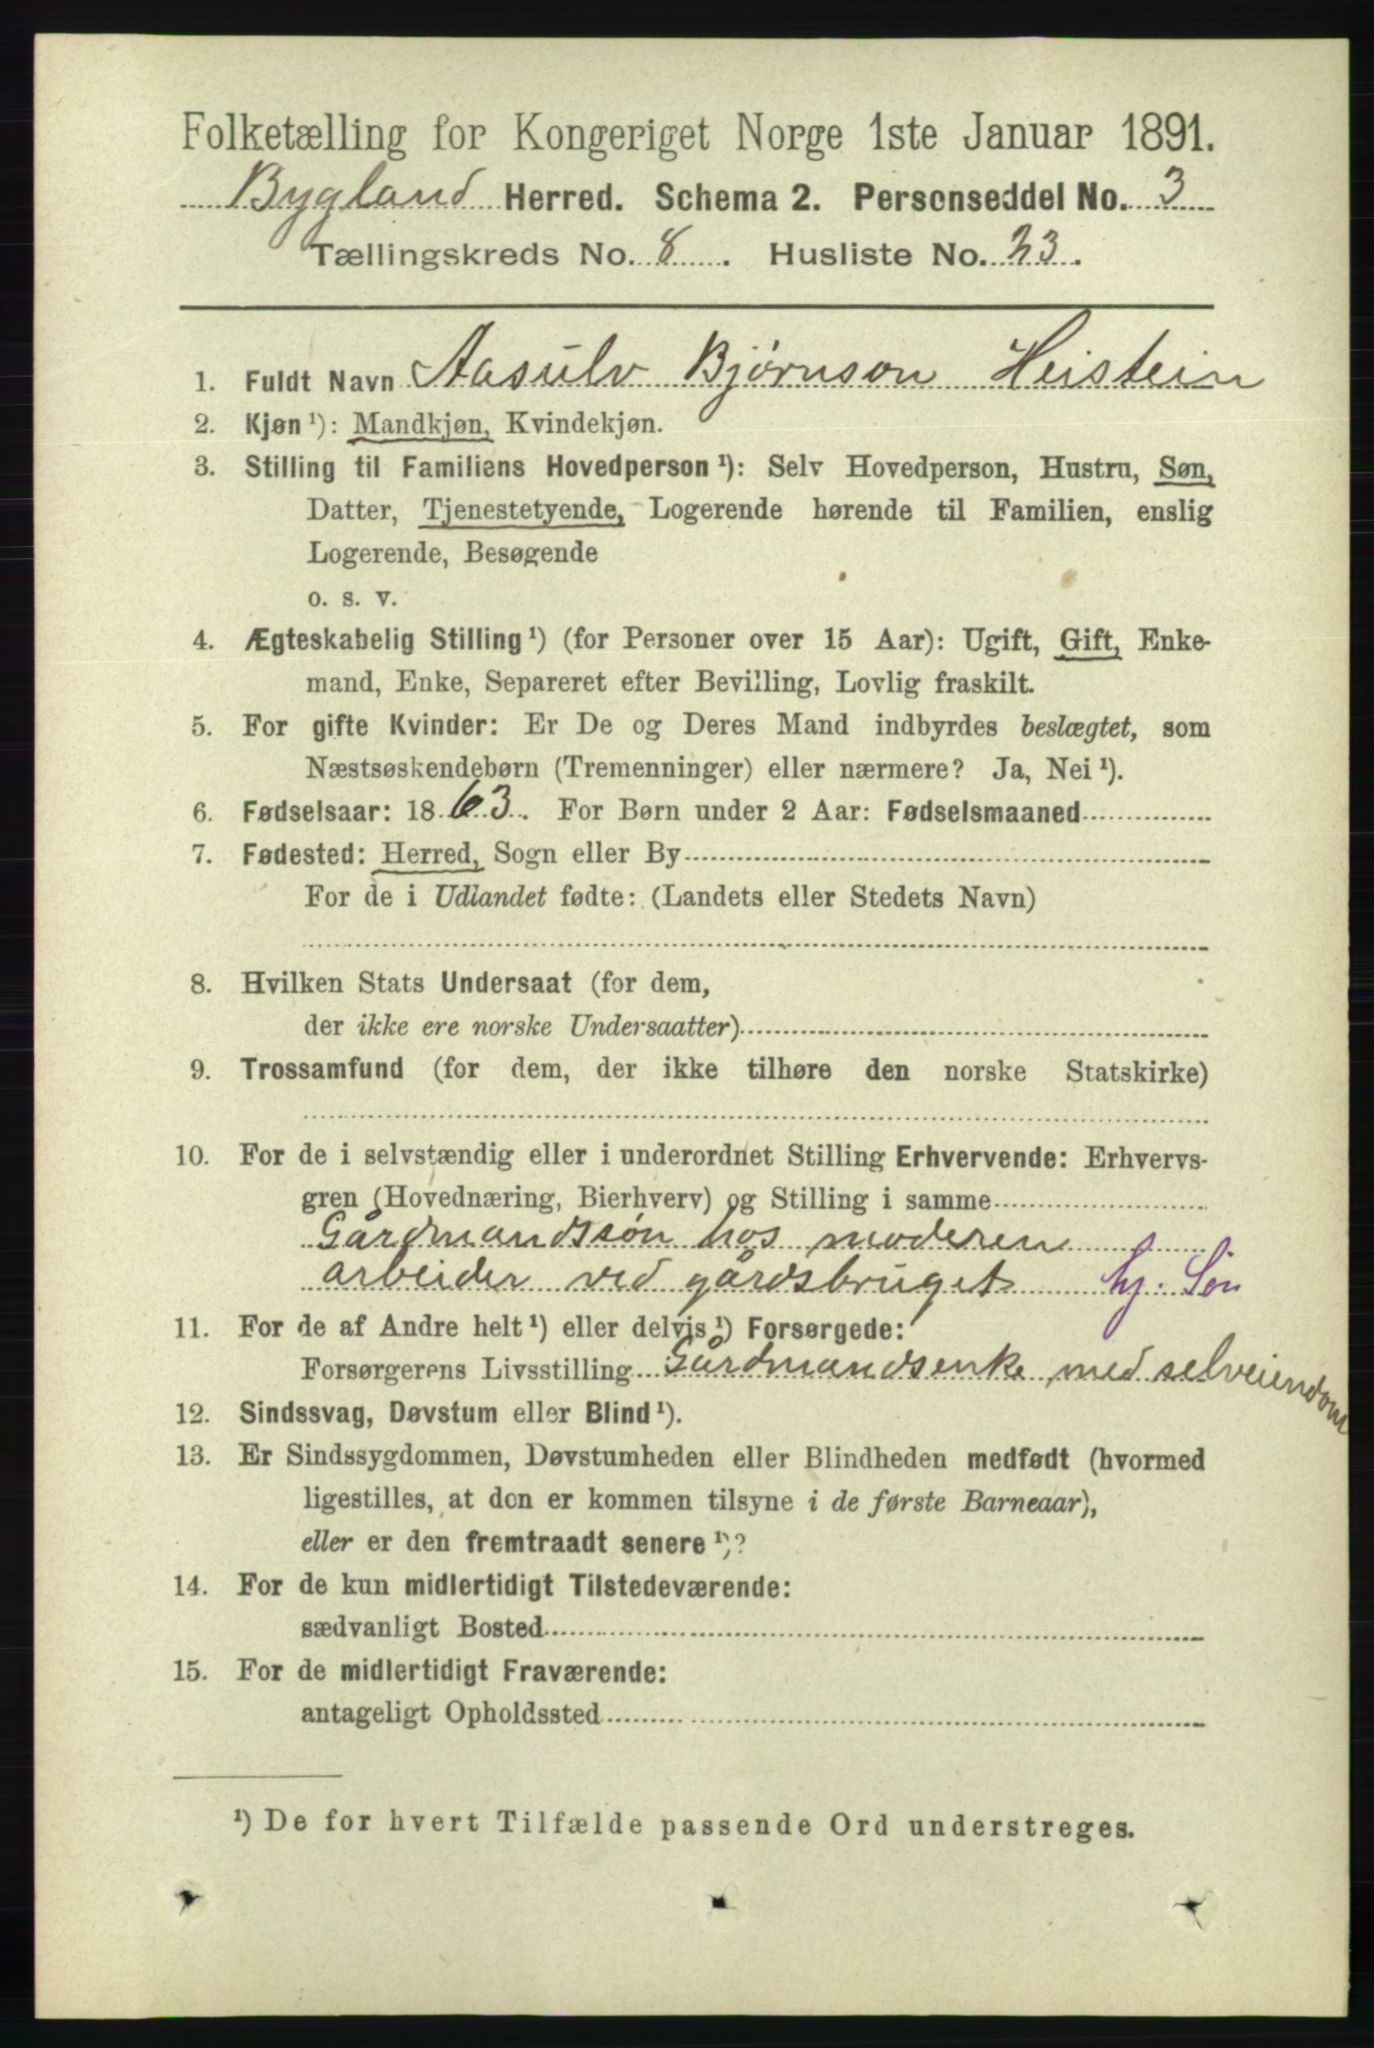 Folketælling for Kongeriget Norge 1ste Januar 1891.
Bygland Herred. Schema 2. Personseddel No. 3
Tællingskreds No. 8. Husliste No. 23.
1. Fuldt Navn Aasulv Bjørnson Heistein
2. Kjøn¹): Mandkjøn, Kvindekjøn.
3. Stilling til Familiens Hovedperson¹): Selv Hovedperson, Hustru, Søn,
Datter, Tjenestetyende, Logerende hørende til Familien, enslig
Logerende, Besøgende
o. s. v.
4. Ægteskabelig Stilling¹) (for Personer over 15 Aar): Ugift, Gift, Enke-
mand, Enke, Separeret efter Bevilling, Lovlig fraskilt.
5. For gifte Kvinder: Er De og Deres Mand indbyrdes beslægtet, som
Næstsøskendebørn (Tremenninger) eller nærmere? Ja, Nei¹).
6. Fødselsaar: 1863. For Børn under 2 Aar: Fødselsmaaned
7. Fødested: Herred, Sogn eller By
For de i Udlandet fødte: (Landets eller Stedets Navn)
8. Hvilken Stats Undersaat (for dem,
der ikke ere norske Undersaatter)
9. Trossamfund (for dem, der ikke tilhøre den norske Statskirke)
10. For de i selvstændig eller i underordnet Stilling Erhvervende: Erhvervs-
gren (Hovednæring, Bierhverv) og Stilling i samme
Gårdmandssøn hos moderen
arbeider ved gårdsbruget hj. Søn
11. For de af Andre helt¹) eller delvis¹) Forsørgede:
Forsørgerens Livsstilling Gårdmandsenke med selveiendom
12. Sindssvag, Døvstum eller Blind¹).
13. Er Sindssygdommen, Døvstumheden eller Blindheden medfødt (hvormed
ligestilles, at den er kommen tilsyne i de første Barneaar),
eller er den fremtraadt senere¹)?
14. For de kun midlertidigt Tilstedeværende:
sædvanligt Bosted
15. For de midlertidigt Fraværende:
antageligt Opholdssted
¹) De for hvert Tilfælde passende Ord understreges.